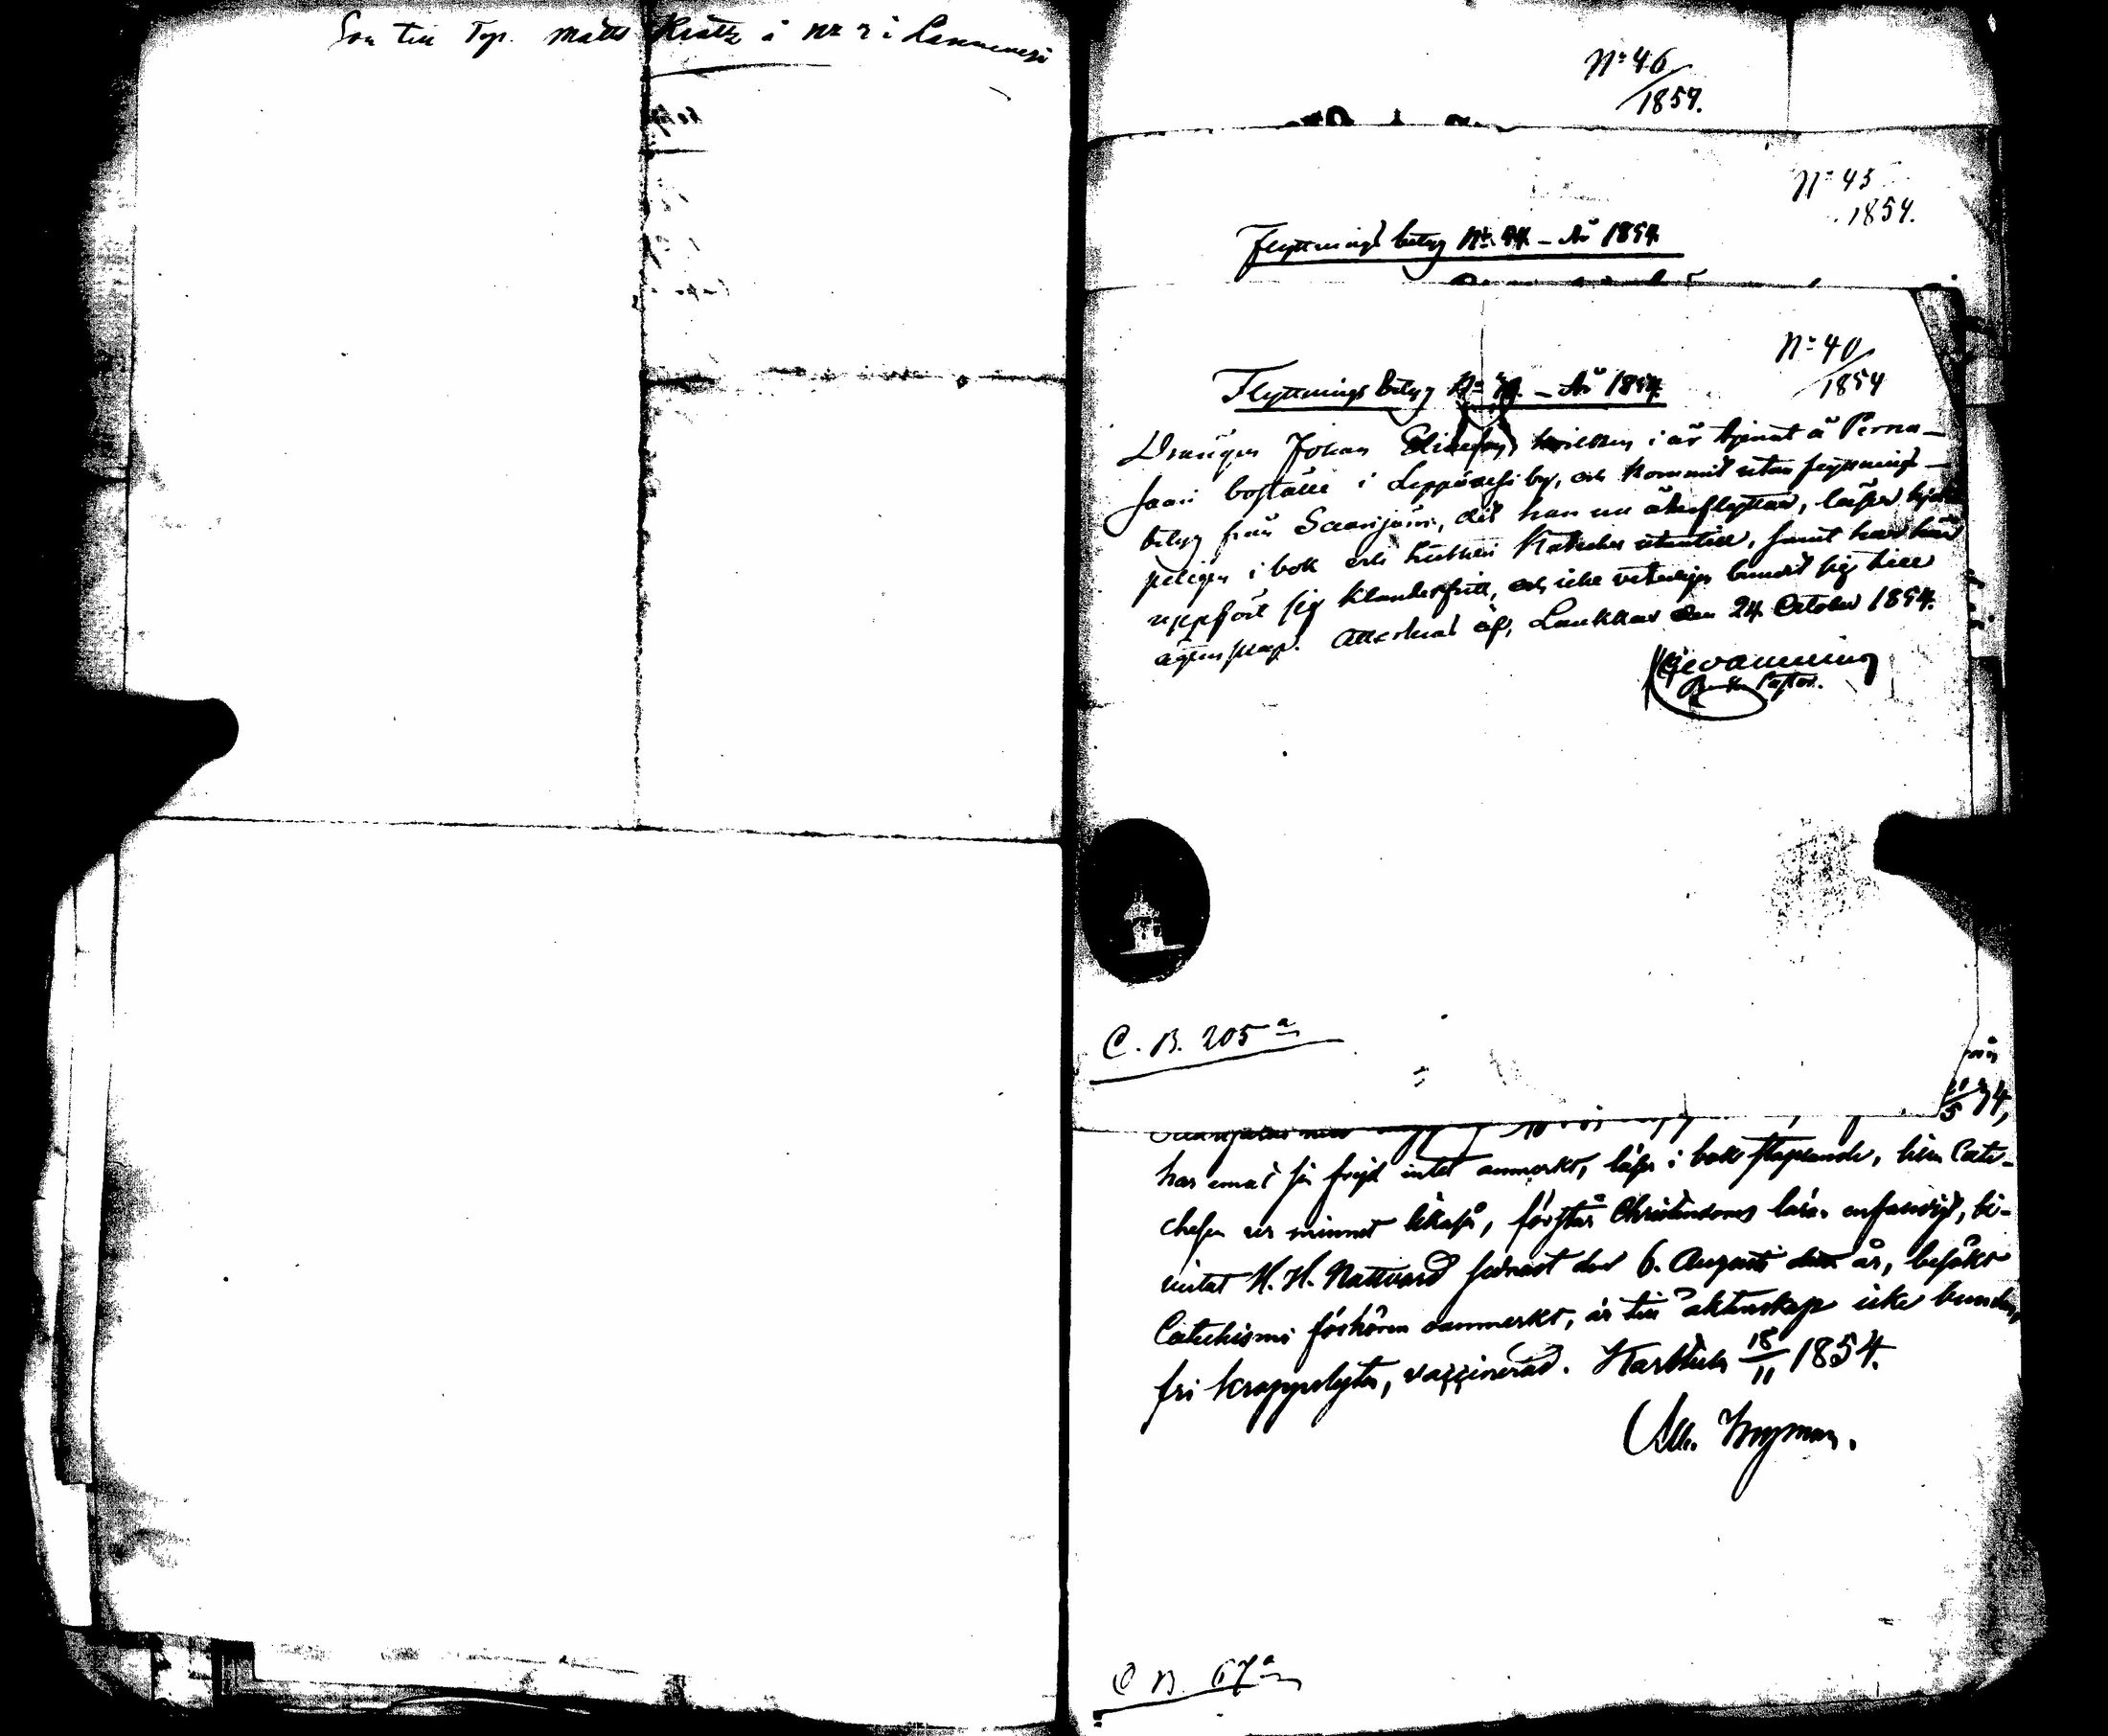 Son till Torp. Matts Krats å No 2 i Lannevesi
No 46
1854.
No 43
1854.
Flyttnings betyg No 44 – År 1854
No 40
1854
Flyttnings betyg No – År 1854
Drängen Johan Eliasson, hvilken i år tjenat å Perna-
saari boställe i Leppävesi by, och kommit utan flyttnings-
betyg från Saarijärvi, dit han nu återflyttar, läser
peligen i bok och Lutheri Kateches utantill, samt har här
uppfört sig klanderfritt, och icke veterligen bundit sig till
ägtenskap. Attesteras af, Laukkas den 24 October 1854.
Pastor.
C. B. 205 a
från
5 34,
har emot sin frejd intet anmerkt, läser i bok stapelande, liten Cate-
chesen ur minnet likaså, förstår Christendoms läran enfaldigt, be-
vistat H. H. Nattvard sednast den 6. Augusti år, besökt
Catechismi förhören oanmerkt, är till äktenskap icke bunden,
fri kroppslyten, vaccinerad. Karstula 18/11 1854.
C B. 67 a